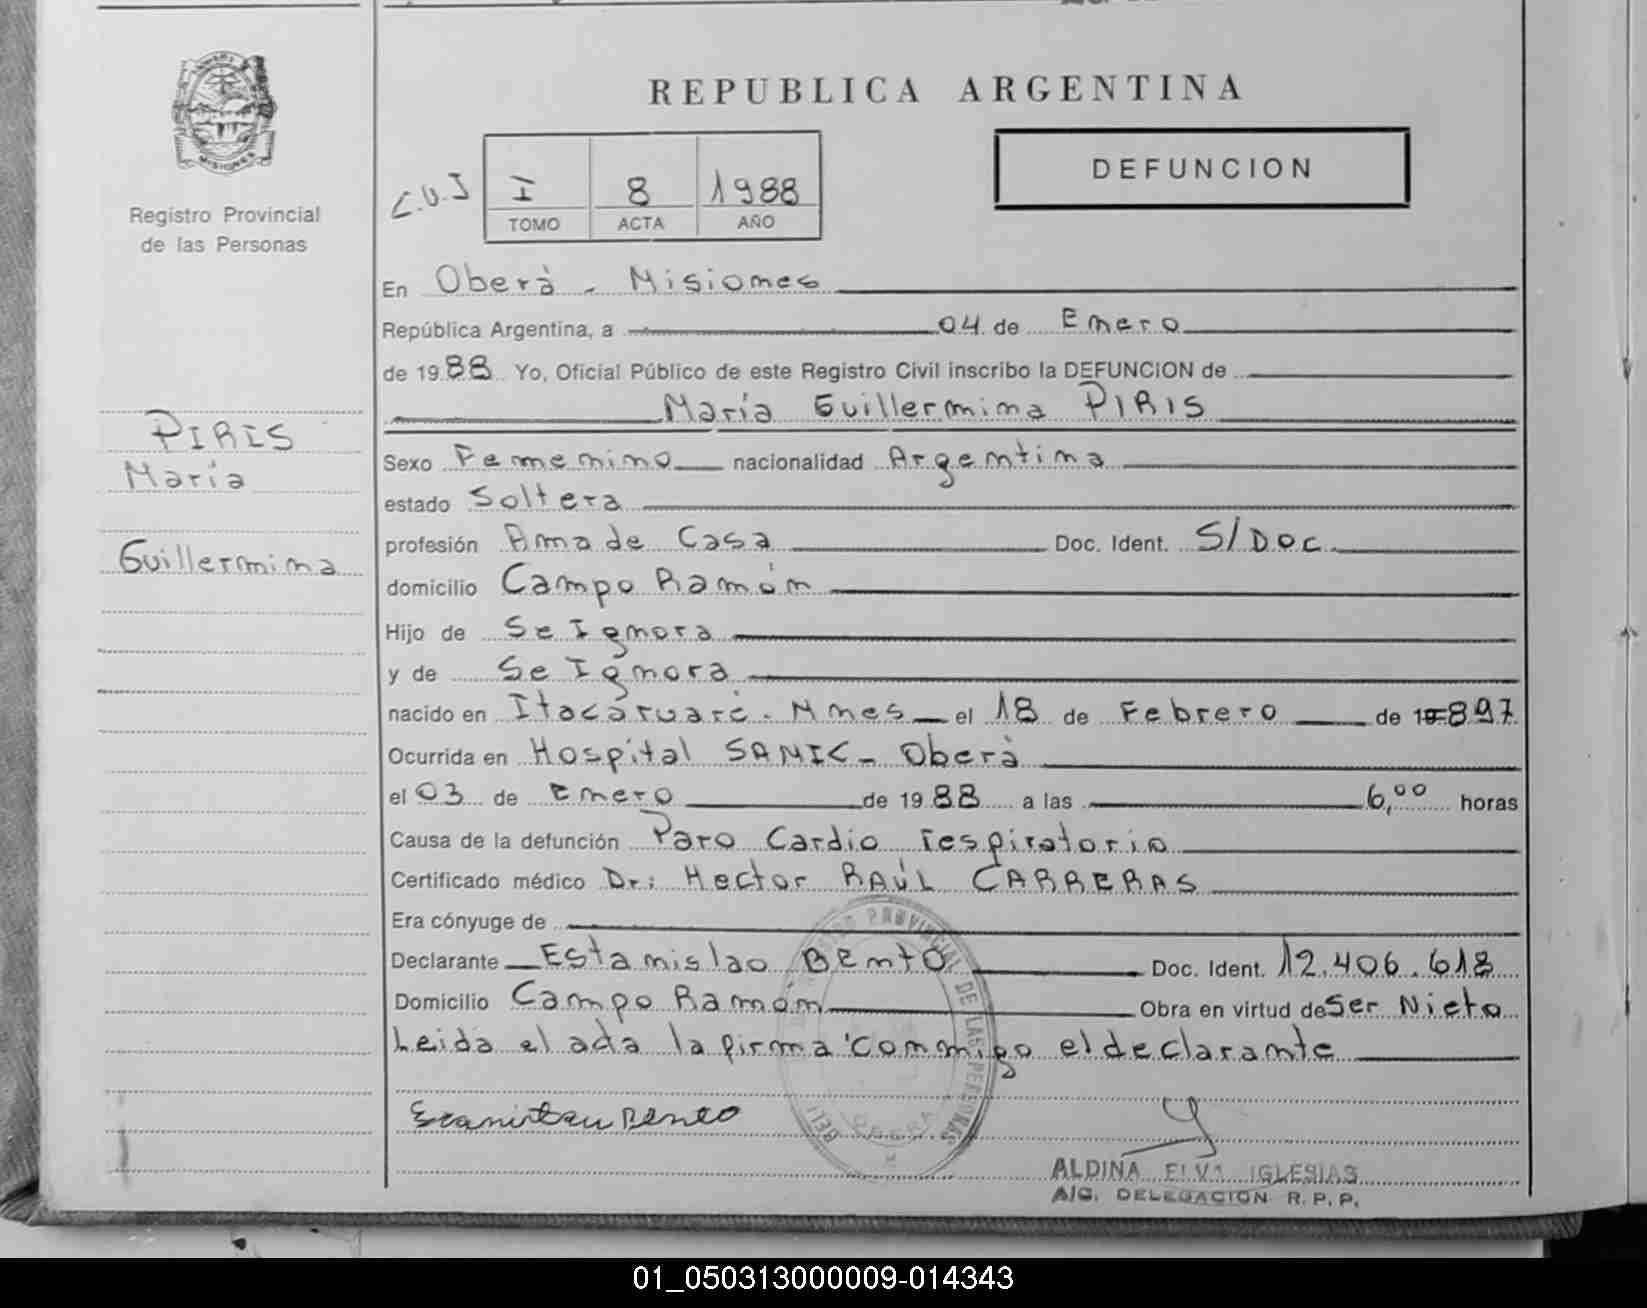 REPUBLICA ARGENTINA
MISIONES
Registro Provincial
de las Personas
C.U.I
I 8 1988
TOMO ACTA AÑO
DEFUNCION
En Oberá - Misiones
República Argentina, a 04 de Enero
de 1988 Yo, Oficial Público de este Registro Civil inscribo la DEFUNCION de
María Guillermina PIRIS
PIRIS
María
Guillermina
Sexo Femenino nacionalidad Argentina
estado Soltera
profesión Ama de Casa Doc. Ident. S/Doc
domicilio Campo Ramón
Hijo de Se Ignora
y de Se Ignora
nacido en Itacaruaré - Mnes el 18 de Febrero de 19897
Ocurrida en Hospital SAMIC - Oberá
el 03 de Enero de 1988 a las 6,00 horas
Causa de la defunción Paro Cardio respiratorio
Certificado médico Dr: Hector RAÚL CARRERAS
Era cónyuge de
Declarante Estanislao BEntO Doc. Ident. 12.406.618
Domicilio Campo Ramón Obra en virtud de Ser Nieto
Leida el acta la firma conmigo el declarante
ALDINA ELVA IGLESIAS
A/C. DELEGACION R. P. P.
01_050313000009-014343